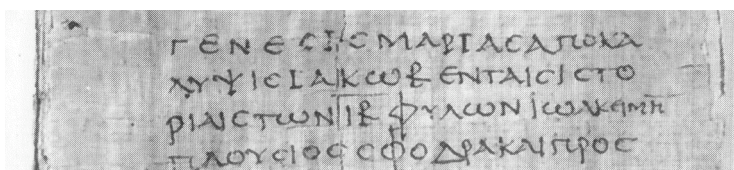 ΓΕΝΕCΙCΜΑΡΙΑCΑΠΟΚΑ
ΛΥΨΙCΙΑΚΩΒΕΝΤΑΙCΙCΤΟ
ΡΙΑΙCΤΩΝΙΒΦΥΛΩΝΙΩΑΚΕΙΜΗ
ΠΛΟΥCΙΟCCΦΟΔΡΑΚΑΙΠΡΟC